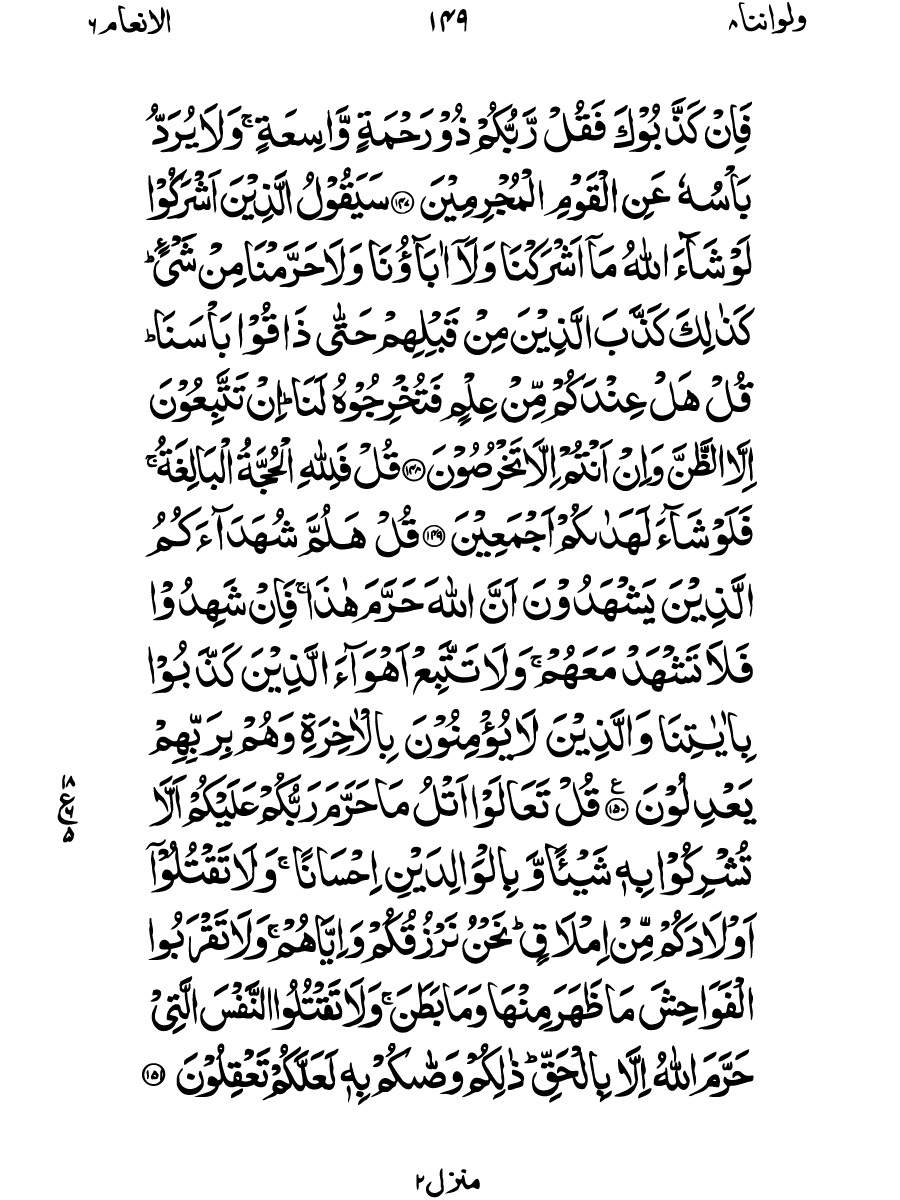 ولواننا۸ ۱۴۹ الانعام۶
فَاِنۡ كَذَّبُوۡكَ فَقُلْ رَّبُّكُمۡ ذُوۡ رَحۡمَةٍ وَّاسِعَةٍ‌ ۚ وَلَا يُرَدُّ
بَاۡسُهٗ عَنِ الۡقَوۡمِ الۡمُجۡرِمِيۡنَ ‏﴿۱۴۷﴾ سَيَقُوۡلُ الَّذِيۡنَ اَشۡرَكُوۡا
لَوۡ شَآءَ اللّٰهُ مَاۤ اَشۡرَكۡنَا وَلَاۤ اٰبَآؤُنَا وَلَا حَرَّمۡنَا مِنۡ شَىۡءٍ‌ ؕ
كَذٰلِكَ كَذَّبَ الَّذِيۡنَ مِنۡ قَبۡلِهِمۡ حَتّٰى ذَاقُوۡا بَاۡسَنَا‌ ؕ
قُلۡ هَلۡ عِنۡدَكُمۡ مِّنۡ عِلۡمٍ فَتُخۡرِجُوۡهُ لَنَا ؕ اِنۡ تَتَّبِعُوۡنَ
اِلَّا الظَّنَّ وَاِنۡ اَنۡتُمۡ اِلَّا تَخۡرُصُوۡنَ ‏﴿۱۴۸﴾ قُلۡ فَلِلّٰهِ الۡحُجَّةُ الۡبَالِغَةُ‌ ۚ
فَلَوۡ شَآءَ لَهَدٰٮكُمۡ اَجۡمَعِيۡنَ ‏﴿۱۴۹﴾ قُلۡ هَلُمَّ شُهَدَآءَكُمُ
الَّذِيۡنَ يَشۡهَدُوۡنَ اَنَّ اللّٰهَ حَرَّمَ هٰذَا‌ ۚ فَاِنۡ شَهِدُوۡا
فَلَا تَشۡهَدۡ مَعَهُمۡ‌‌ ۚ وَلَا تَتَّبِعۡ اَهۡوَآءَ الَّذِيۡنَ كَذَّبُوۡا
بِاٰيٰتِنَا وَالَّذِيۡنَ لَا يُؤۡمِنُوۡنَ بِالۡاٰخِرَةِ وَهُمۡ بِرَبِّهِمۡ
يَعۡدِلُوۡنَ ‏﴿۱۵۰﴾ ع قُلۡ تَعَالَوۡا اَتۡلُ مَا حَرَّمَ رَبُّكُمۡ عَلَيۡكُمۡ‌ اَلَّا
۱۸ ع ۶ ۵
تُشۡرِكُوۡا بِهٖ شَيۡـًٔـا وَّبِالۡوَالِدَيۡنِ اِحۡسَانًا‌ ۚ وَلَا تَقۡتُلُوۡۤا
اَوۡلَادَكُمۡ مِّنۡ اِمۡلَاقٍ‌ ؕ نَحۡنُ نَرۡزُقُكُمۡ وَاِيَّاهُمۡ‌ ۚ وَلَا تَقۡرَبُوا
الۡفَوَاحِشَ مَا ظَهَرَ مِنۡهَا وَمَا بَطَنَ‌ ۚ وَلَا تَقۡتُلُوا النَّفۡسَ الَّتِىۡ
حَرَّمَ اللّٰهُ اِلَّا بِالۡحَقِّ‌ ؕ ذٰلِكُمۡ وَصّٰٮكُمۡ بِهٖ لَعَلَّكُمۡ تَعۡقِلُوۡنَ ‏﴿۱۵۱﴾
منزل۲